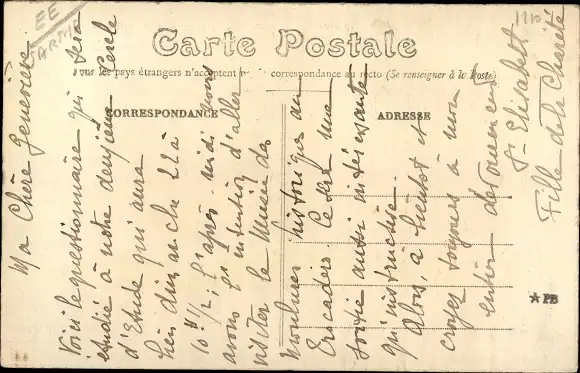 Carte Postale
Tous les pays étrangers n'acceptent pas correspondance au recto (Se renseigner à la Poste)
CORRESPONDANCE
ADRESSE
Ma Chère Geneviève
Voici le questionnaire qui sera
étudié à notre deuxième Cercle
d'Etude qui aura
lieu dimanche 22 à
10 H 1/2. L'après-midi nous
avons l'intention d'aller
visiter le Musée des
moulures historiques au
Trocadéro. Ce sera une
sortie aussi intéressante
qu'instructive.
Alors, à bientôt et
croyez toujours à mon
entier dévouement
Sr Elisabeth
Fille de la Charité
★ PB